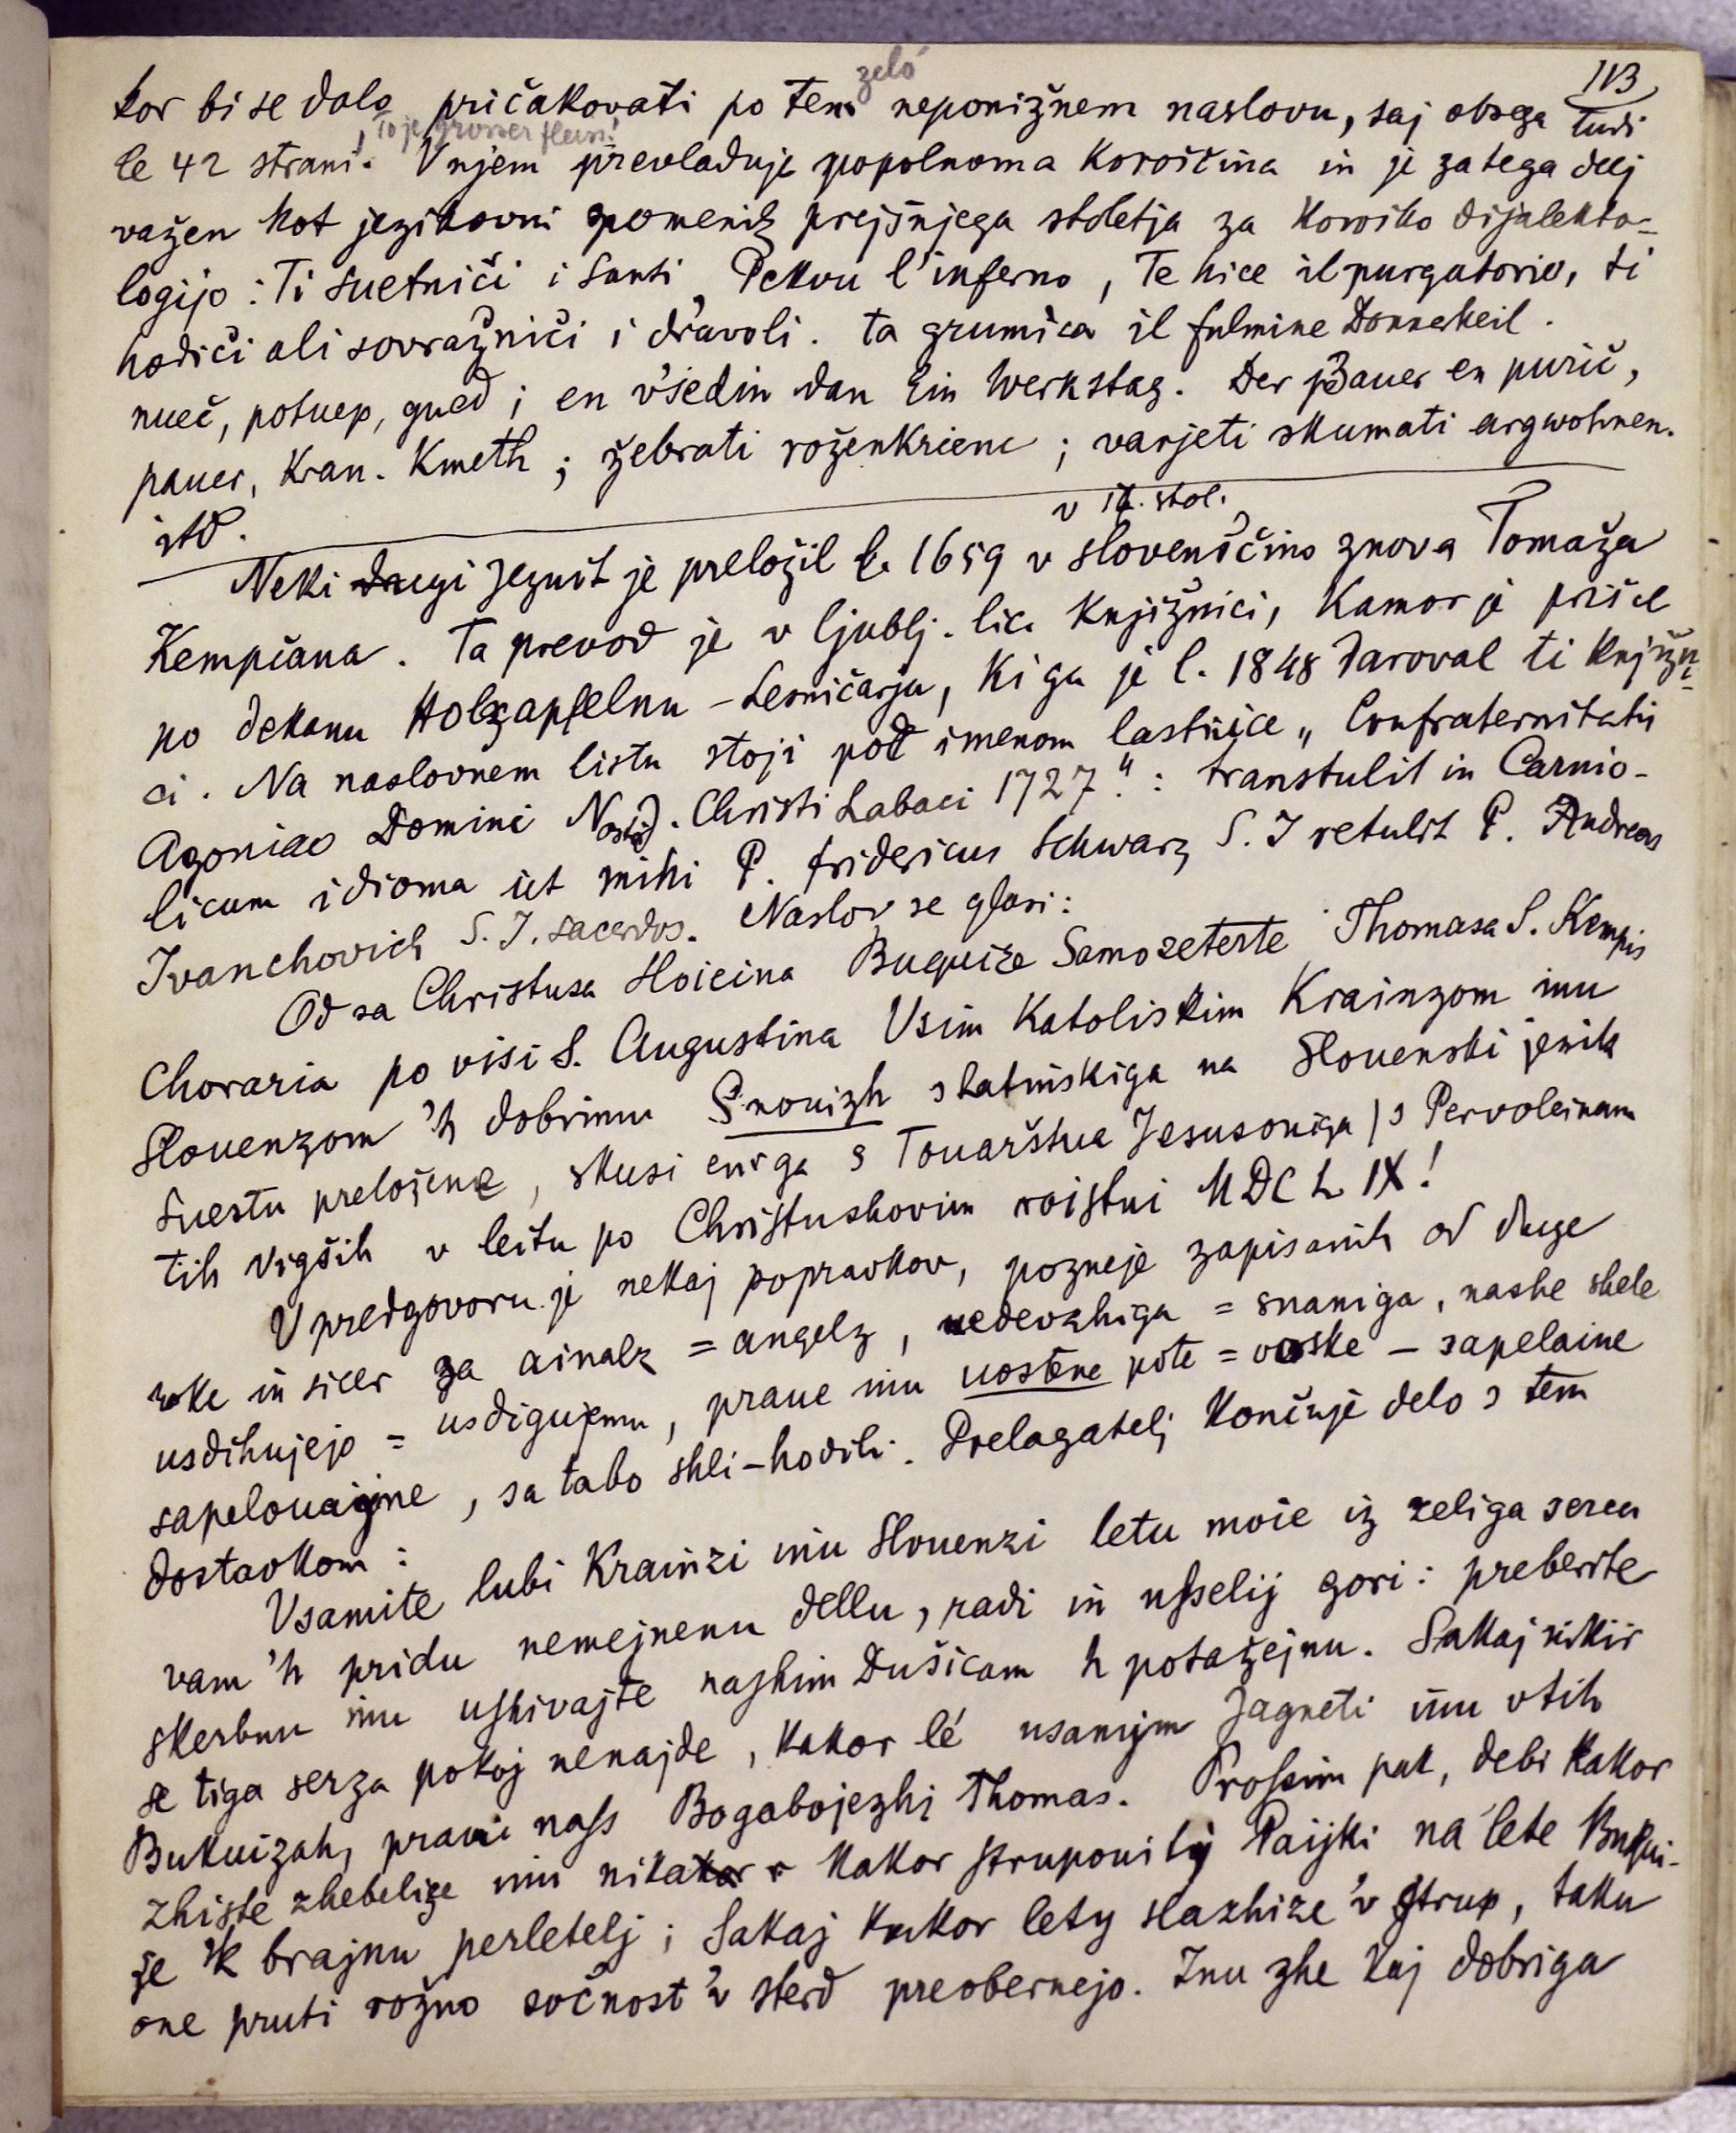 113
kor bi se dalo pričakovati po tem zelo neponižnem naslovu, saj obsega tudi
le 42 strani. V njem prevladuje popolnoma koroščina in je zatega delj
, to je grosser
važen kot jezikovni spomenik prejšnjega stoletja za koroško dijalekto-
logijo: Ti suetniči i santi, Pekou l'inferno, Te hice il purgatorio, ti
hodiči ali sovražniči i diavoli. ta grumica il fulmine Donnerkeil.
nueč, potuep, gued; en všedin dan Ein Werkstag. Der Bauer en purič,
pauer, Kran. Kmeth; žebrati roženkrienc; varjeti skumati argwohnen.
itd.
v 17. stol.
Neki drugi jezuit je preložil l. 1659 v slovenščino znova Tomaža
Kempčana. Ta prevod je v ljublj. lic. knjižnici, kamor je prišel
po dekanu Holzapfelnu - Lesničarju, ki ga je l. 1848 daroval ti knjižni-
ci. Na naslovnem listu stoji pod imenom lastnice „Confraternitatis
Agoniae Domini Nostri J. Christi Labaci 1727.": transtulit in Carnio-
licum idioma ut mihi P. Fridericus Schwarz S. J retulit P. Andreas
Ivanchovich S. J. sacerdos. Naslov se glasi:
Od sa Christusa Hoieina Buquize Samozeterte Thomasa S. Kempis
Choraria po visi S. Augustina Vsim Katoliskim Krainzom inu
Slouenzom 'h dobrimu S'nouizh s Latinskiga na Slouenski jesik
suestu preložene, skusi eniga s Touarštva Jesusoviga / s Pervoleinam
tih vigših v leitu po Christushovim roistui MDCLIX!
V predgovoru je nekaj popravkov, pozneje zapisanih od druge
roke in sicer za ainalz = angelz, nedevzhiga = snaniga, nashe shele
usdihujejo = usdigujemu, praue inu uostene pote = voske - sapelaine
sapelouajne, sa tabo shli - hodili. Prelagatelj končuje delo s tem
dostavkom:
Vsamite lubi Krainzi inu Slouenzi letu moie iz zeliga serca
vam 'h pridu nemejnenu dellu, radi in usselij gori: preberite
skerbnu inu ushivajte nashim Dušicam h potažejnu. Sakaj nikir
se tiga serza pokoj nenajde, kakor lé usamijm Jagneti inu vtih
Bukuizah, pravi nass Bogabojezhi Thomas. Prossim pak, debi kakor
zhiste zhebelize inu nikakor kakor strupoviti Paijki na lete Bukui-
ze 'k brajnu perletelj; Sakaj kakor lety slazhize 'v strup, taku
one pruti rožno sočnost 'v sterd preobernejo. Inu zhe kaj dobriga